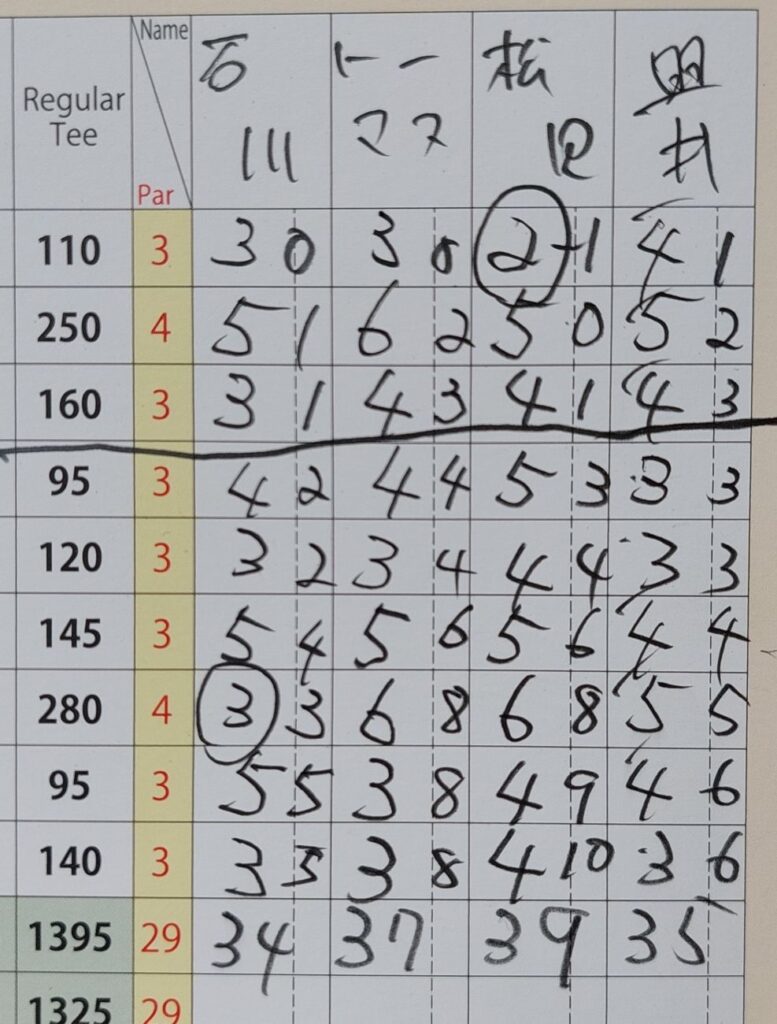 Name
Regular Tee
Par
石川 トーマス 松 盟
110 3 3 0 3 0 2 -1 4 1
250 4 5 1 6 2 5 0 5 2
160 3 3 1 4 3 4 1 4 3
95 3 4 2 4 4 5 3 3 3
120 3 3 2 3 4 4 4 3 3
145 3 5 4 5 6 5 6 4 4
280 4 3 3 6 8 6 8 5 5
95 3 5 5 3 8 4 9 4 6
140 3 3 5 3 8 4 10 3 6
1395 29 34 37 39 35
1325 29